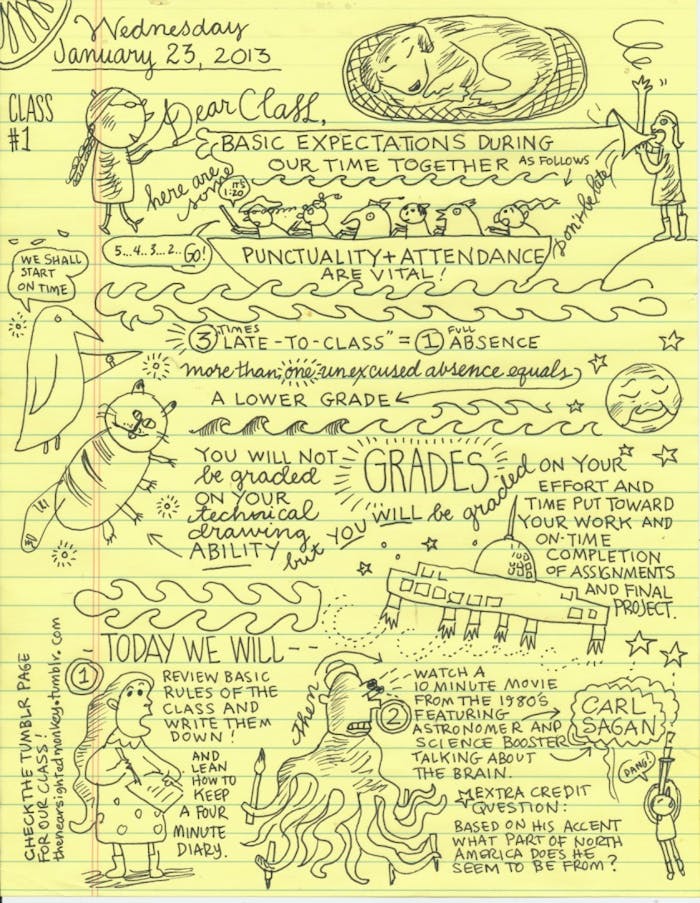 Wednesday
January 23, 2013
CLASS
#1
Dear Class,
here are
some
BASIC EXPECTATIONS DURING
OUR TIME TOGETHER AS FOLLOWS
don't be late
IT'S
1:20
5...4...3...2... GO!
PUNCTUALITY + ATTENDANCE
ARE VITAL!
WE SHALL
START
ON TIME
3 TIMES "LATE-TO-CLASS" = 1 FULL ABSENCE
more than one unexcused absence equals
A LOWER GRADE
GRADES
YOU WILL NOT
be graded
ON YOUR
technical
drawing
ABILITY but YOU WILL be graded ON YOUR
EFFORT AND
TIME PUT TOWARD
YOUR WORK AND
ON-TIME
COMPLETION
OF ASSIGNMENTS
AND FINAL
PROJECT.
TODAY WE WILL --
1
REVIEW BASIC
RULES OF THE
CLASS AND
WRITE THEM
DOWN!
AND
LEAN
HOW TO
KEEP
A FOUR
MINUTE
DIARY.
then
2
WATCH A
10 MINUTE MOVIE
FROM THE 1980'S
FEATURING
ASTRONOMER AND
SCIENCE BOOSTER
TALKING ABOUT
THE BRAIN.
CARL
SAGAN
DANG!
EXTRA CREDIT
QUESTION:
BASED ON HIS ACCENT
WHAT PART OF NORTH
AMERICA DOES HE
SEEM TO BE FROM?
CHECK THE TUMBLR PAGE
FOR OUR CLASS!
thenearsightedmonkey.tumblr.com